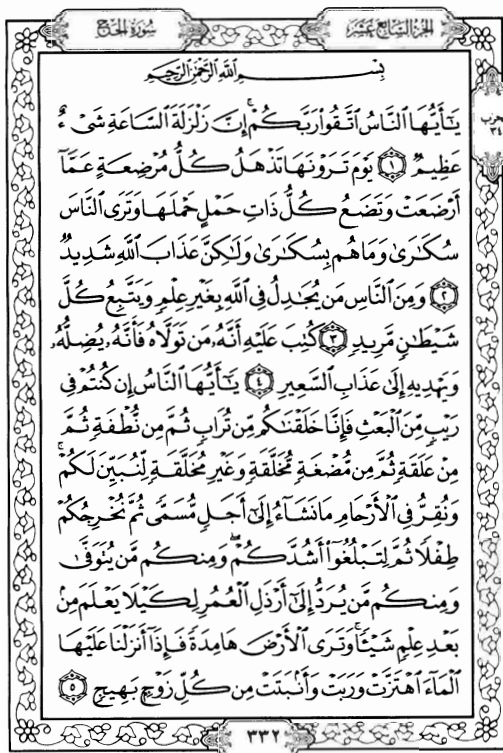 سُورَةُ الحَجِّ
الجُزْءُ السَّابِعَ عَشَرَ
حزب
٣٤
بِسْمِ اللَّهِ الرَّحْمَٰنِ الرَّحِيمِ
يَٰٓأَيُّهَا النَّاسُ اتَّقُوا رَبَّكُمْ ۚ إِنَّ زَلْزَلَةَ السَّاعَةِ شَىْءٌ
عَظِيمٌ ١ يَوْمَ تَرَوْنَهَا تَذْهَلُ كُلُّ مُرْضِعَةٍ عَمَّآ
أَرْضَعَتْ وَتَضَعُ كُلُّ ذَاتِ حَمْلٍ حَمْلَهَا وَتَرَى النَّاسَ
سُكَٰرَىٰ وَمَا هُم بِسُكَٰرَىٰ وَلَٰكِنَّ عَذَابَ اللَّهِ شَدِيدٌ
٢ وَمِنَ النَّاسِ مَن يُجَٰدِلُ فِى اللَّهِ بِغَيْرِ عِلْمٍ وَيَتَّبِعُ كُلَّ
شَيْطَٰنٍ مَّرِيدٍ ٣ كُتِبَ عَلَيْهِ أَنَّهُۥ مَن تَوَلَّاهُ فَأَنَّهُۥ يُضِلُّهُۥ
وَيَهْدِيهِ إِلَىٰ عَذَابِ السَّعِيرِ ٤ يَٰٓأَيُّهَا النَّاسُ إِن كُنتُمْ فِى
رَيْبٍ مِّنَ الْبَعْثِ فَإِنَّا خَلَقْنَٰكُم مِّن تُرَابٍ ثُمَّ مِن نُّطْفَةٍ ثُمَّ
مِنْ عَلَقَةٍ ثُمَّ مِن مُّضْغَةٍ مُّخَلَّقَةٍ وَغَيْرِ مُخَلَّقَةٍ لِّنُبَيِّنَ لَكُمْ ۚ
وَنُقِرُّ فِى الْأَرْحَامِ مَا نَشَآءُ إِلَىٰٓ أَجَلٍ مُّسَمًّى ثُمَّ نُخْرِجُكُمْ
طِفْلًا ثُمَّ لِتَبْلُغُوٓا أَشُدَّكُمْ ۖ وَمِنكُم مَّن يُتَوَفَّىٰ
وَمِنكُم مَّن يُرَدُّ إِلَىٰٓ أَرْذَلِ الْعُمُرِ لِكَيْلَا يَعْلَمَ مِنۢ
بَعْدِ عِلْمٍ شَيْـًٔا ۚ وَتَرَى الْأَرْضَ هَامِدَةً فَإِذَآ أَنزَلْنَا عَلَيْهَا
الْمَآءَ اهْتَزَّتْ وَرَبَتْ وَأَنۢبَتَتْ مِن كُلِّ زَوْجٍۭ بَهِيجٍ ٥
٣٣٢